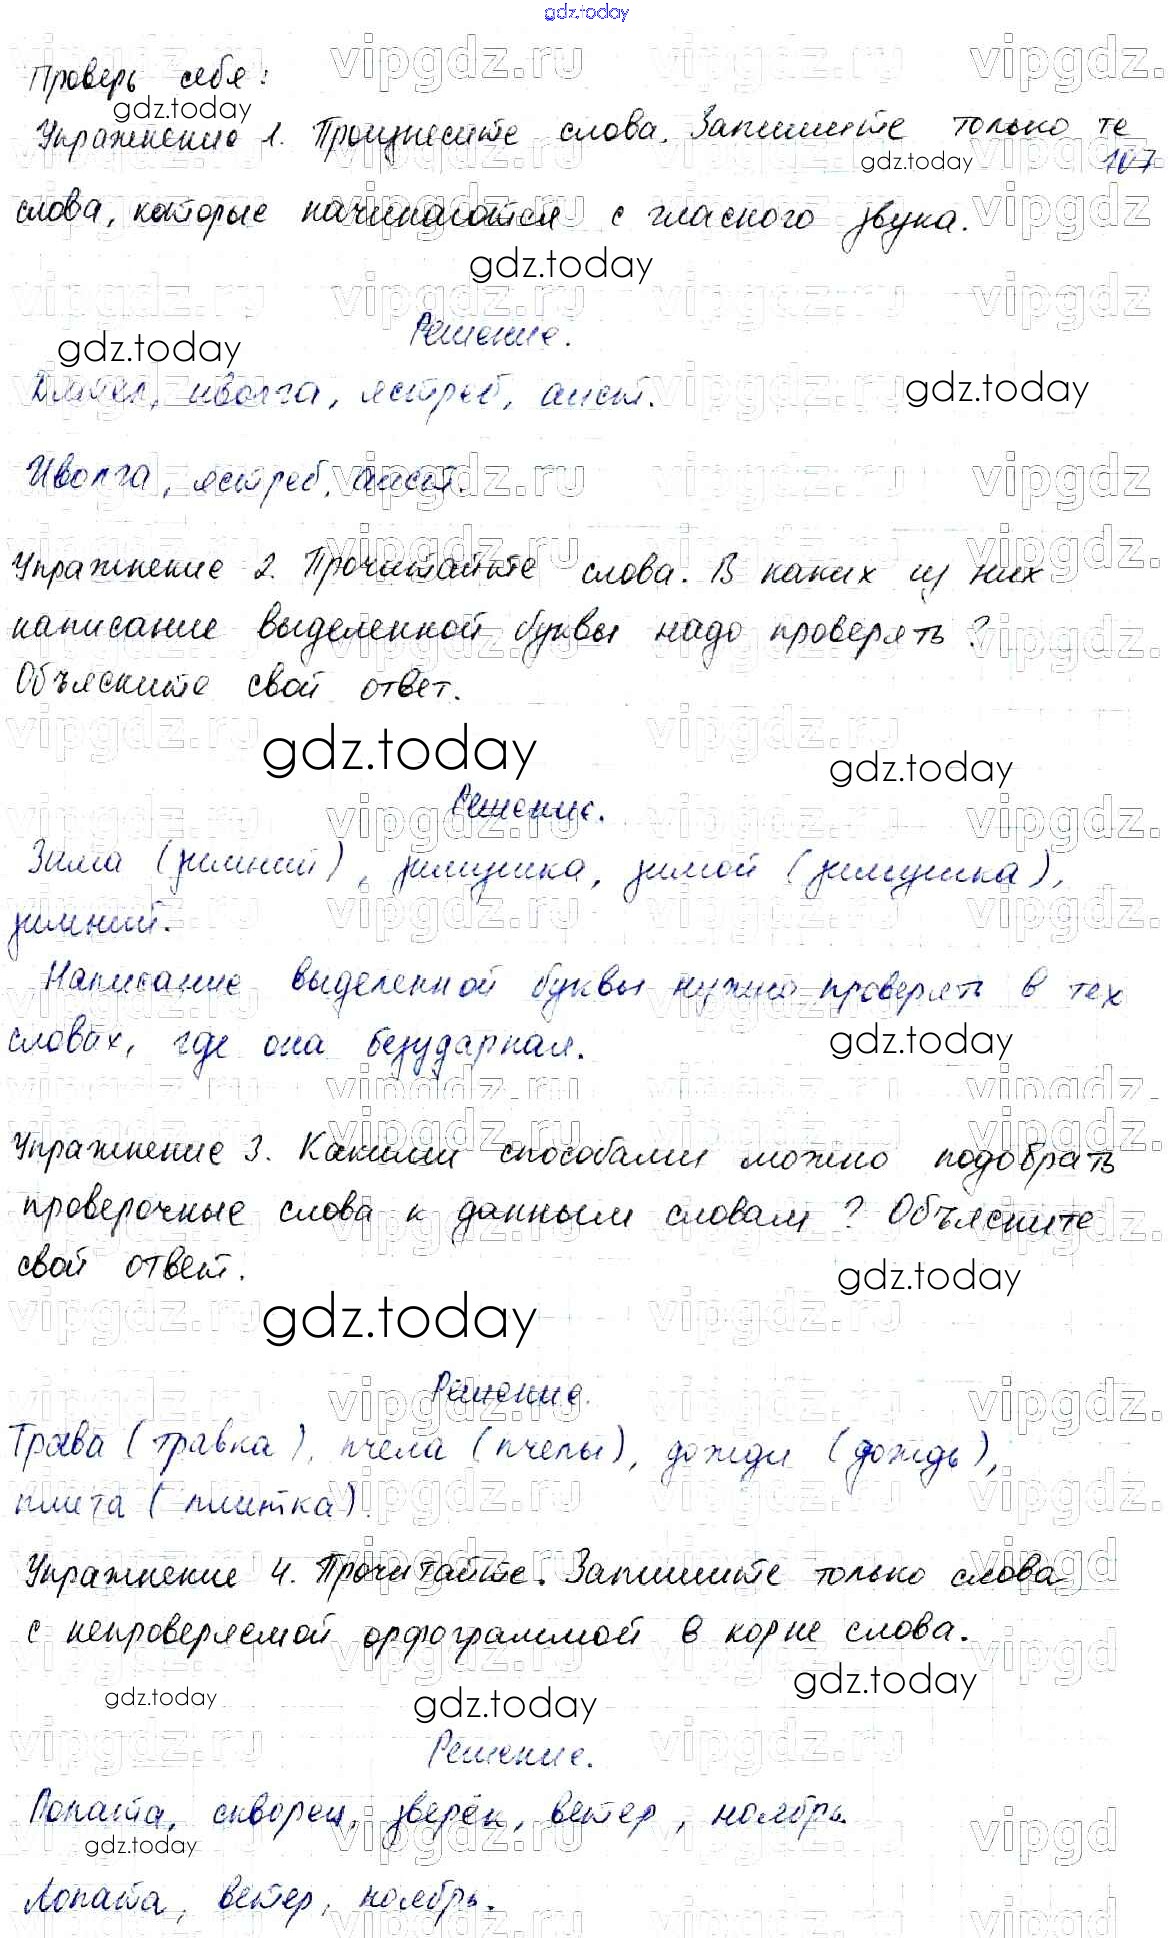 gdz.today
Проверь себя:
Упражнение 1. Произнесите слова. Запишите только те
107
слова, которые начинаются с гласного звука.
Решение.
Дятел, иволга, ястреб, аист.
Иволга, ястреб, аист.
Упражнение 2. Прочитайте слова. В каких из них
написание выделенной буквы надо проверять?
Объясните свой ответ.
Решение.
Зима (зимний), зимушка, зимой (зимушка),
зимний.
Написание выделенной буквы нужно проверять в тех
словах, где она безударная.
Упражнение 3. Какими способами можно подобрать
проверочные слова к данным словам? Объясните
свой ответ.
Решение.
Трава (травка), пчела (пчелы), дожди (дождь),
плита (плитка).
Упражнение 4. Прочитайте. Запишите только слова
с непроверяемой орфограммой в корне слова.
Решение.
Лопата, скворец, зверёк, ветер, ноябрь.
Лопата, ветер, ноябрь.